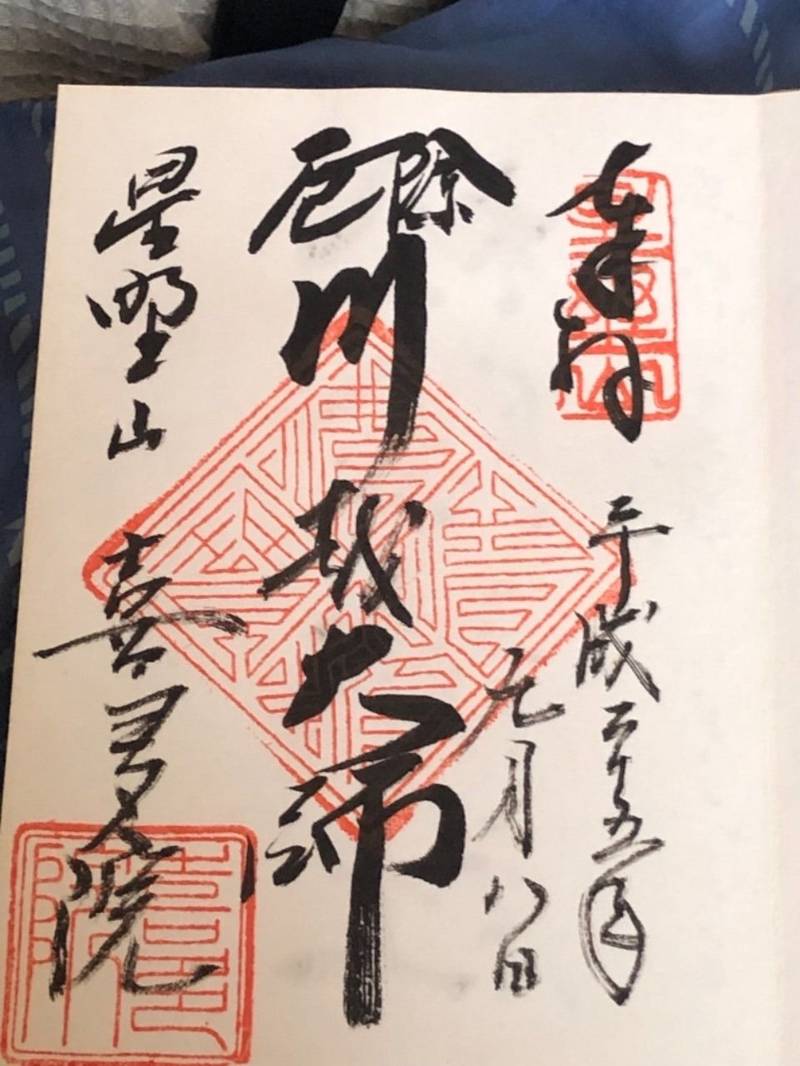 奉拝
平成二十五年
七月八日
厄除
川越大師
星野山
喜多院